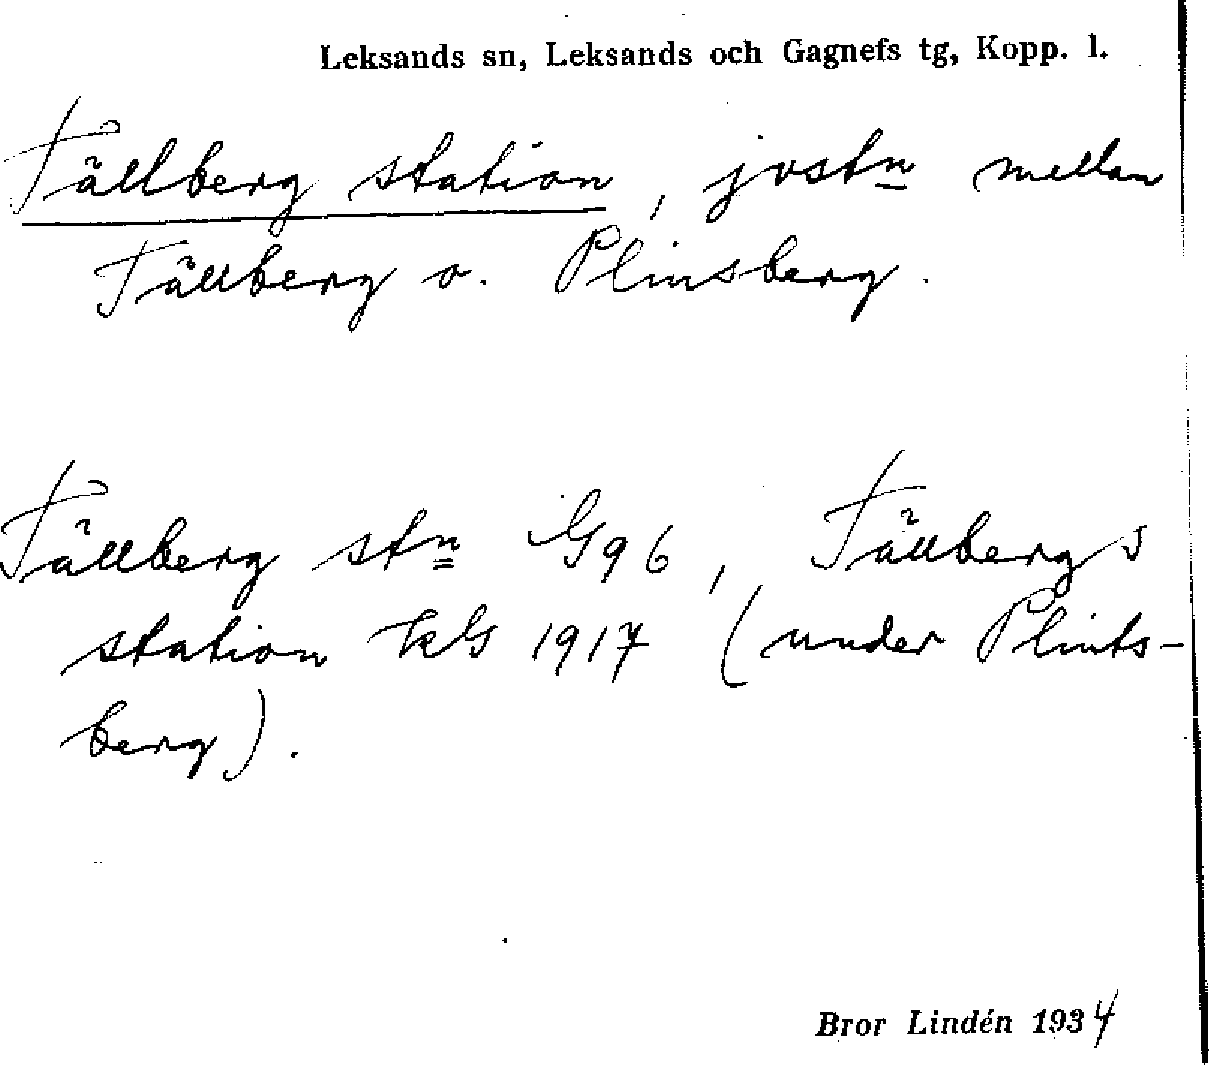 Leksands sn, Leksands och Gagnefs tg, Kopp. l.
Tällberg station, jvstn mellan
Tällberg o. Plinsberg.
Tällberg stn G96, Tällbergs
station kG 1917 (under Plints-
berg).
Bror Lindén 1934